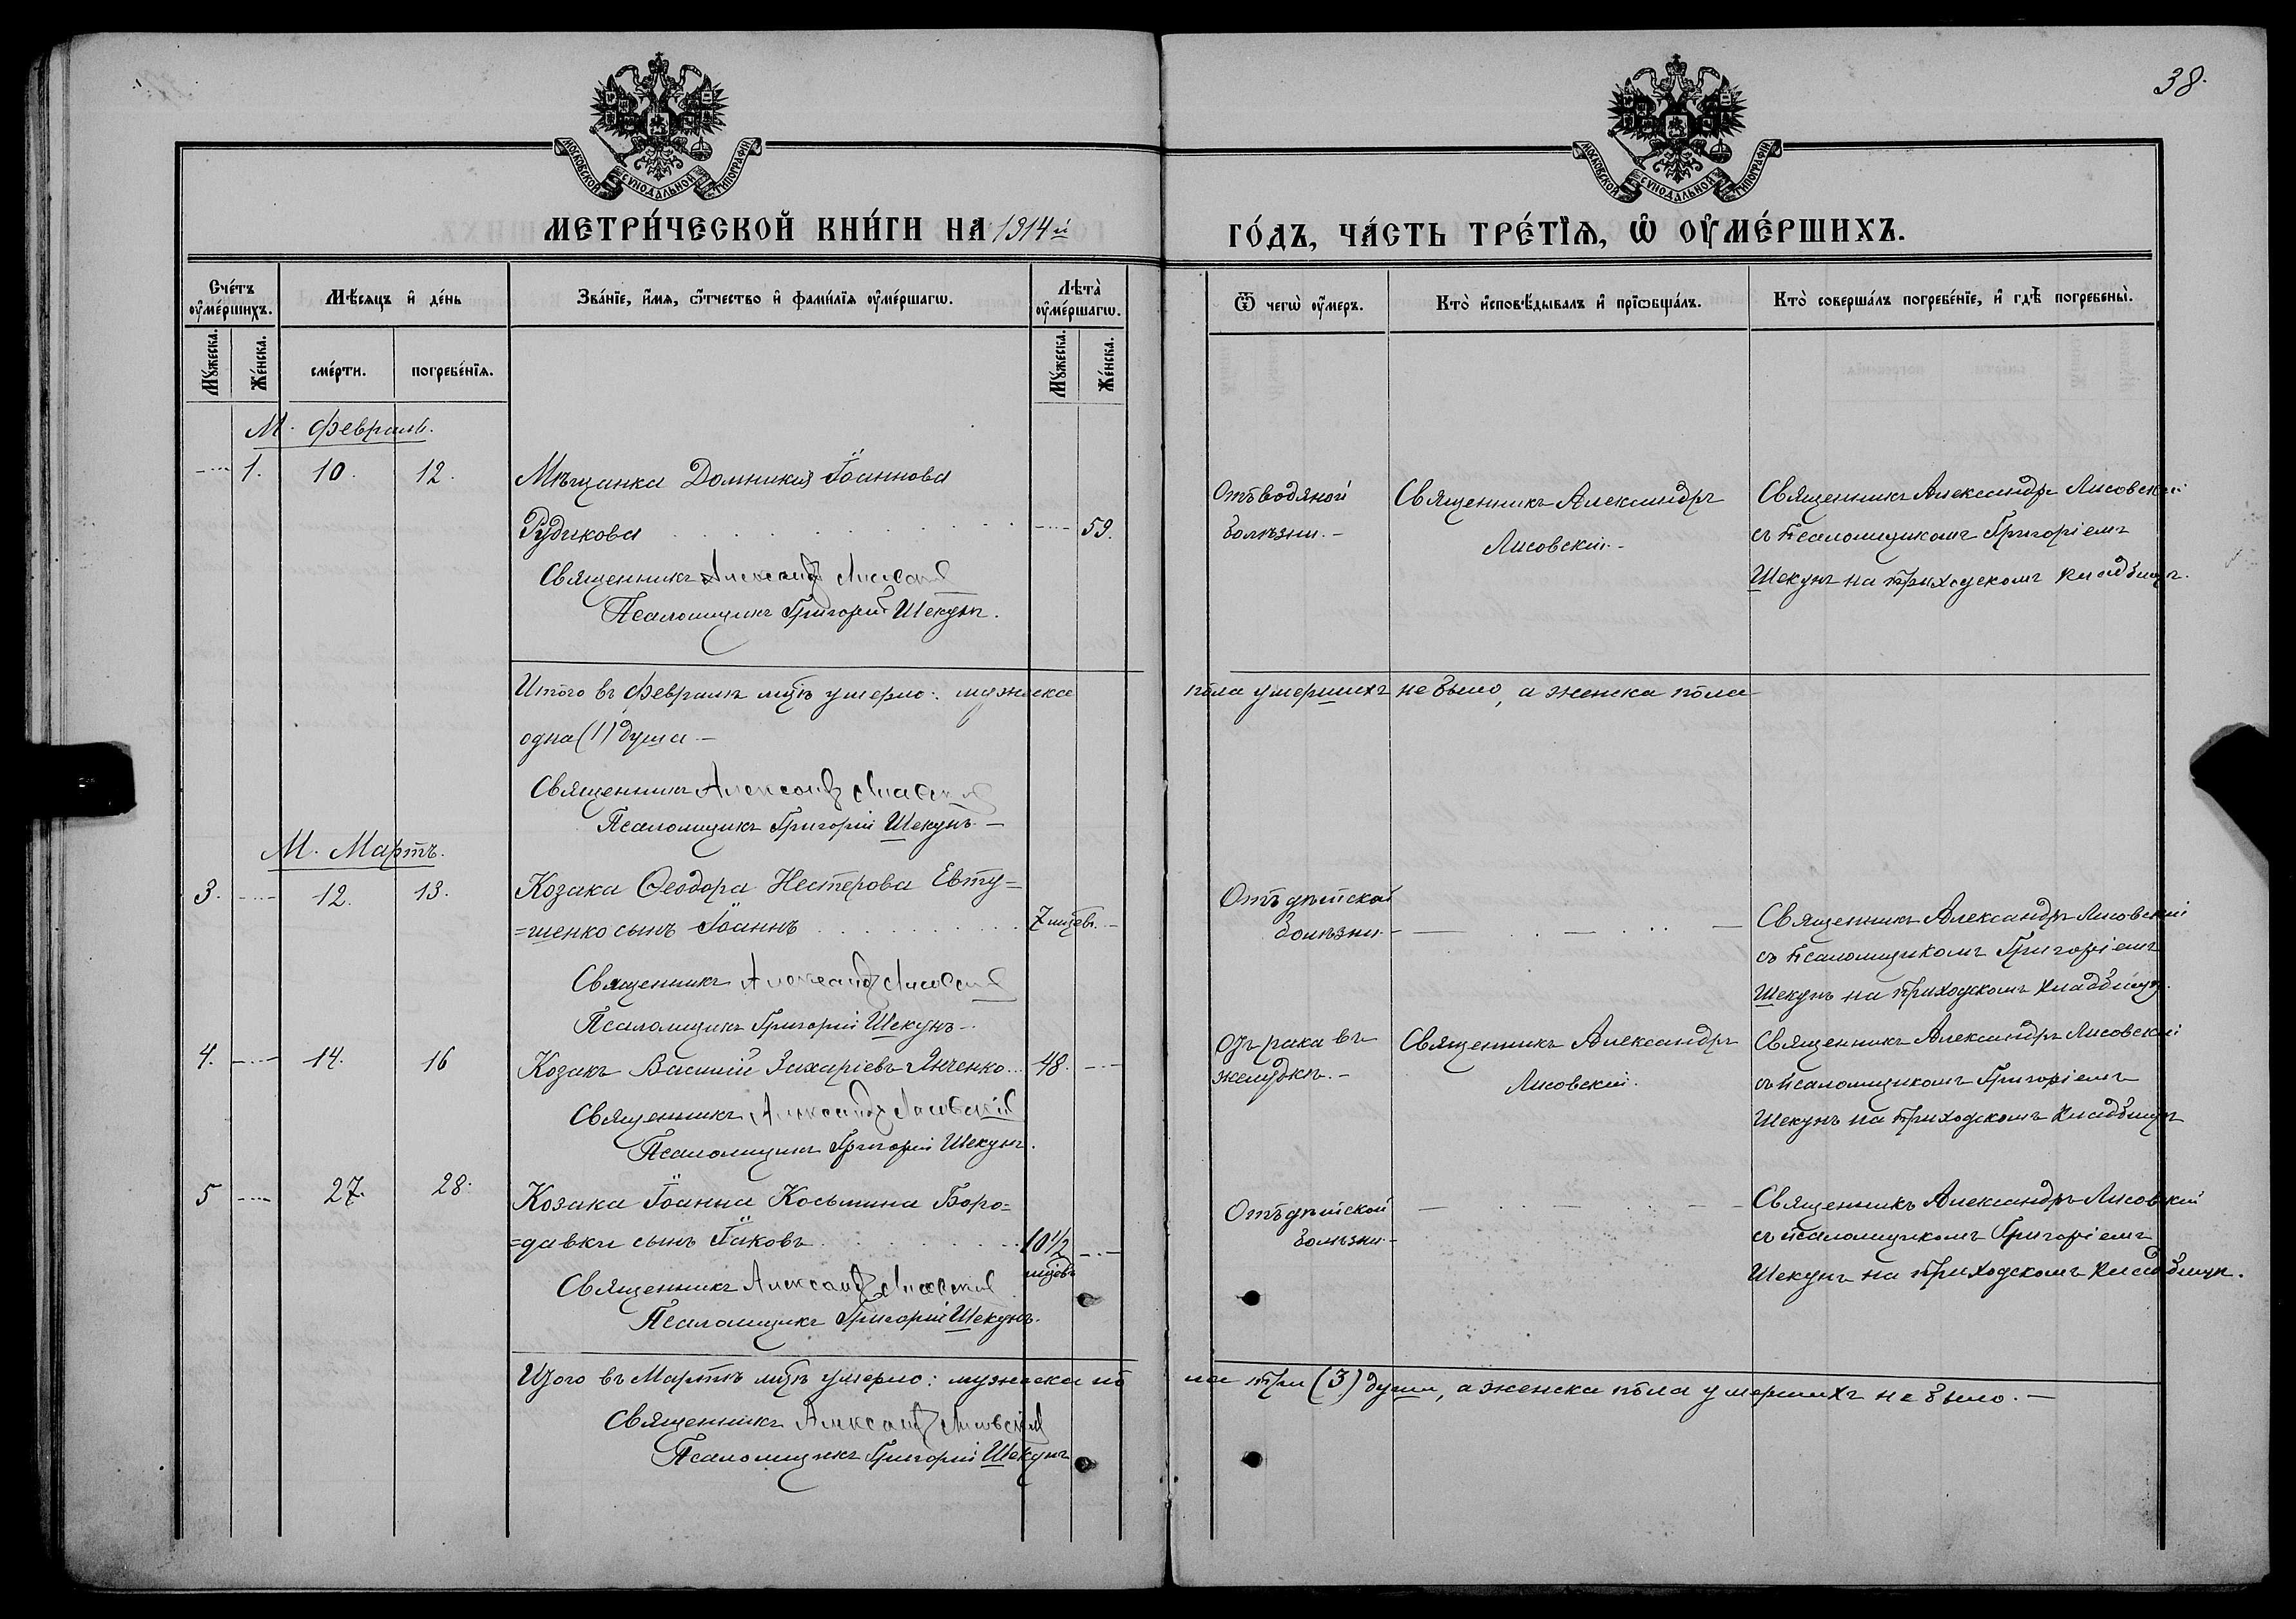 38.
МОСКОВСКОЙ СѴНОДАЛЬНОЙ ТИПОГРАФІИ
МОСКОВСКОЙ СѴНОДАЛЬНОЙ ТИПОГРАФІИ
МЕТРИ́ЧЕСКОЙ КНИ́ГИ НА 1914й
ГО́ДЪ, ЧА́СТЬ ТРЕ́ТЇѦ, Ѡ ОУ҆МЕ́РШИХЪ.
Сче́тъ оу҆ме́ршихъ.
Мѣ́сяцъ и҆ де́нь
Зва́нїе, и҆́мя, ѻ҆́тчество и҆ фами́лїя оу҆ме́ршагѡ.
Лѣта̀ оу҆ме́ршагѡ.
Ѿ чегѡ̀ оу҆́меръ.
Кто̀ и҆сповѣ́дывалъ и҆ прїѡбща́лъ.
Кто̀ соверша́лъ погребе́нїе, и҆ гдѣ̀ погребены̀.
Му́жеска.
Же́нска.
сме́рти.
погребе́нїя.
Му́жеска.
Же́нска.
М. Февраль.
1. 10. 12. Мѣщанка Домникія Іоаннова
Рудикова 59.
Священникъ Александръ Лисовскій
Псаломщикъ Григорій Шекунъ.
Отъ водяной
болѣзни.-
Священникъ Александръ
Лисовскій.-
Священникъ Александръ Лисовскій
съ псаломщикомъ Григоріемъ
Шекунъ на приходскомъ кладбищѣ.
Итого въ Февралѣ мцѣ умерло: мужеска пола умершихъ не было, а женска пола
одна (1) душа -
Священникъ Александръ Лисовскій
Псаломщикъ Григорій Шекунъ. -
М. Мартъ.
3. 12. 13. Козака Ѳеодора Нестерова Евту=
=шенко сынъ Іоаннъ 7 мцевъ. -
Священникъ Александръ Лисовскій
Псаломщикъ Григорій Шекунъ-.
Отъ дѣтской
болѣзни.-
Священникъ Александръ Лисовскій
съ псаломщикомъ Григоріемъ
Шекунъ на приходскомъ кладбищѣ.
4. 14. 16 Козакъ Василій Захаріевъ Янченко... 48.
Священникъ Александръ Лисовскій
Псаломщикъ Григорій Шекунъ.
Отъ рака въ
желудкѣ.-
Священникъ Александръ
Лисовскій.
Священникъ Александръ Лисовскій
съ псаломщикомъ Григоріемъ
Шекунъ на приходскомъ кладбищѣ
5 27. 28. Козака Іоанна Косьмина Боро=
=давки сынъ Іаковъ 10 1/2
мцевъ
Священникъ Александръ Лисовскій
Псаломщикъ Григорій Шекунъ.
Отъ дѣтской
болѣзни-
Священникъ Александръ Лисовскій
съ псаломщикомъ Григоріемъ
Шекунъ на приходскомъ кладбищѣ.
Итого въ Мартѣ мцѣ умерло: мужеска по ла три (3) души, а женска пола умершихъ не было. -
Священникъ Александръ Лисовскій
Псаломщикъ Григорій Шекунъ